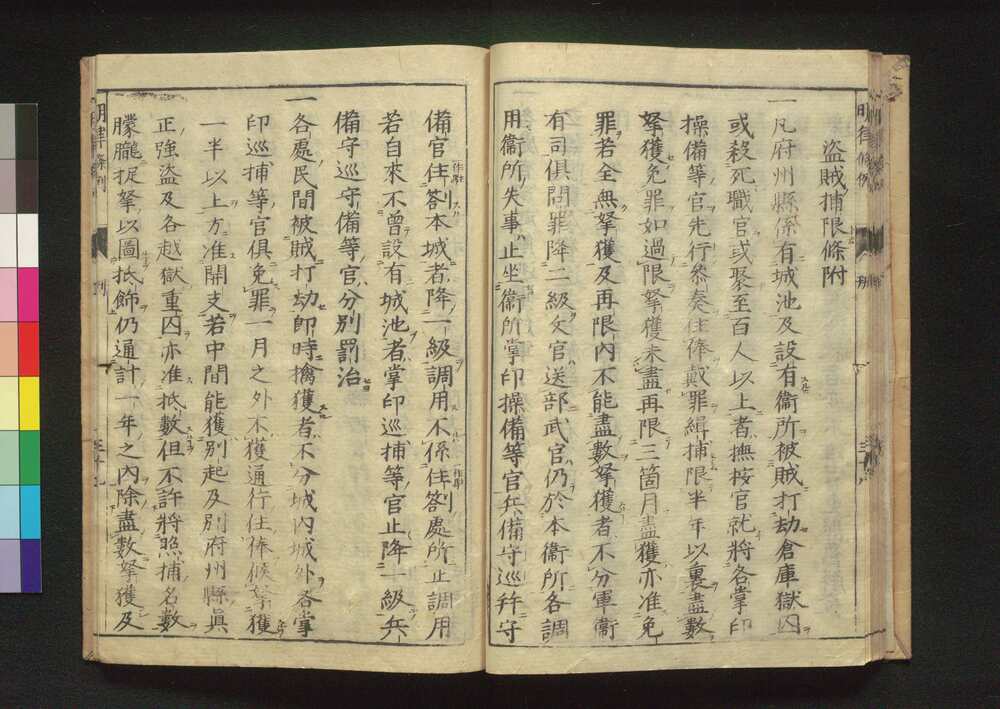 盜賊捕限條附
一凡府州縣係有城池及設有衞所被賊打劫倉庫獄囚
或殺死職官或聚至百人以上者撫按官就將各掌印
操備等官先行叅奏住俸戴罪緝捕限半年以裏盡數
拏獲免罪如過限拏獲未盡再限三箇月盡獲亦准免
罪若全無拏獲及再限內不能盡數拏獲者不分軍衞
有司俱問罪降二級文官送部武官仍於本衞所各調
用衞所失事止坐衞所掌印操備等官兵備守巡幷守
備官住劄本城者降一級調用不係住劄處所止調用
若自來不曾設有城池者掌印巡捕等官止降一級兵
備守巡守備等官分別罰治
一各處民間被賊打劫卽時擒獲者不分城內城外各掌
印巡捕等官俱免罪一月之外不獲通行住俸候拏獲
一半以上方准開支若中間能獲別起及別府州縣眞
正強盜及各越獄重囚亦准抵數但不許將照捕名數
朦朧捉拏以圖抵飾仍通計一年之內除盡數拏獲及
明律條例